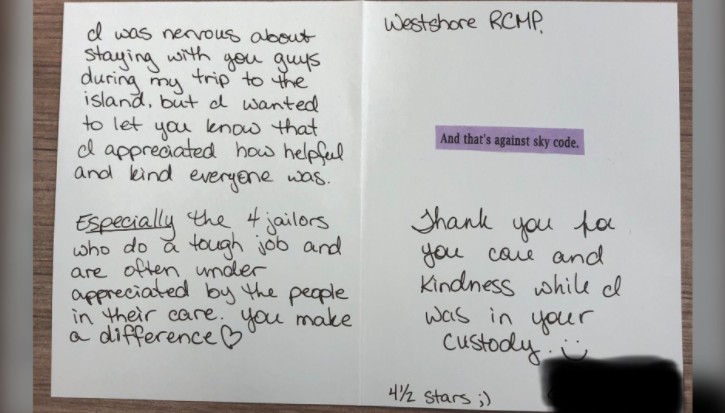 I was nervous about
staying with you guys
during my trip to the
island, but I wanted
to let you know that
I appreciated how helpful
and kind everyone was.
Especially the 4 jailors
who do a tough job and
are often under
appreciated by the people
in their care. You make
a difference ♡
Westshore RCMP.
And that's against sky code.
Thank you for
you care and
kindness while I
was in your
custody. :)
4½ stars ;)